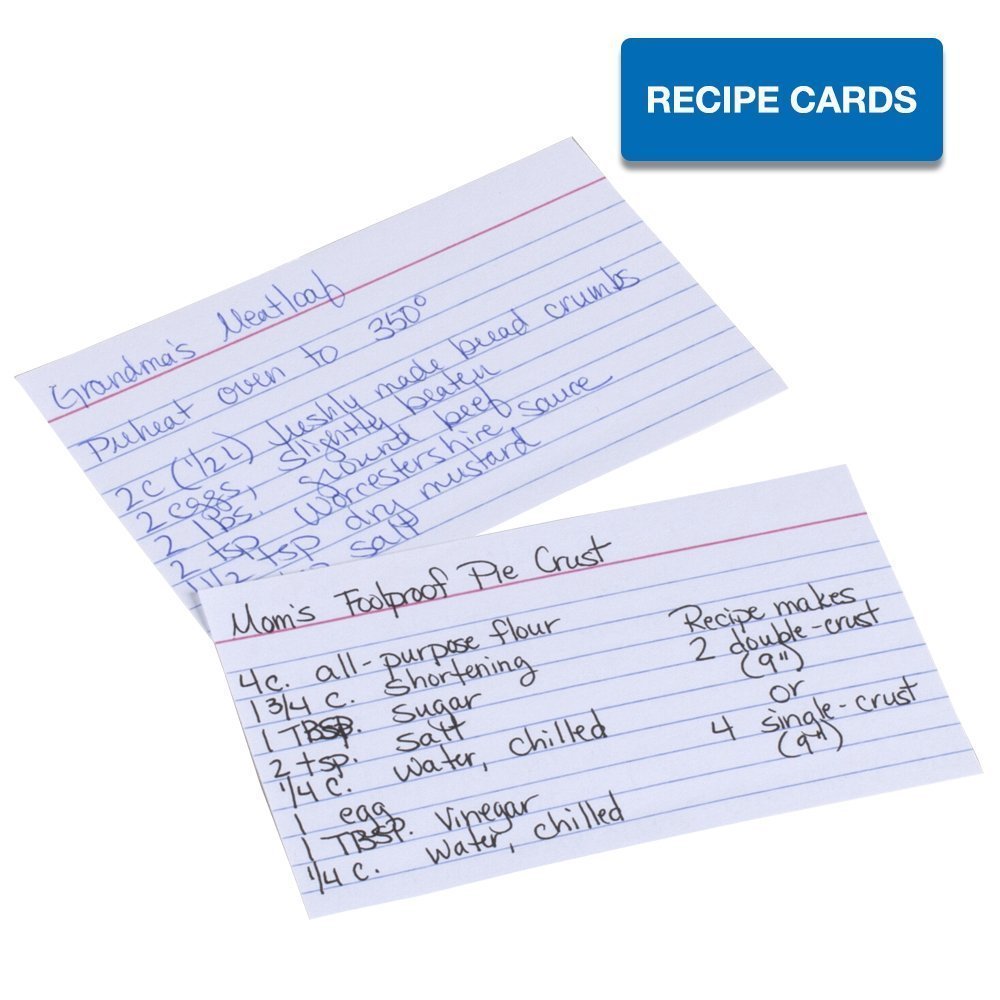 RECIPE CARDS
Grandma's Meatloaf
Preheat oven to 350°
2c (1/2 L) freshly made bread crumbs
2 eggs, slightly beaten
2 lbs. ground beef
2 tsp Worcestershire sauce
1 1/2 tsp dry mustard
salt
Mom's Foolproof Pie Crust
4c. all-purpose flour
1 3/4 c. shortening
1 TBSP. sugar
2 tsp. salt
1/4 c. water, chilled
1 egg
1 TBSP. vinegar
1/4 c. water, chilled
Recipe makes
2 double-crust
(9")
or
4 single-crust
(9")